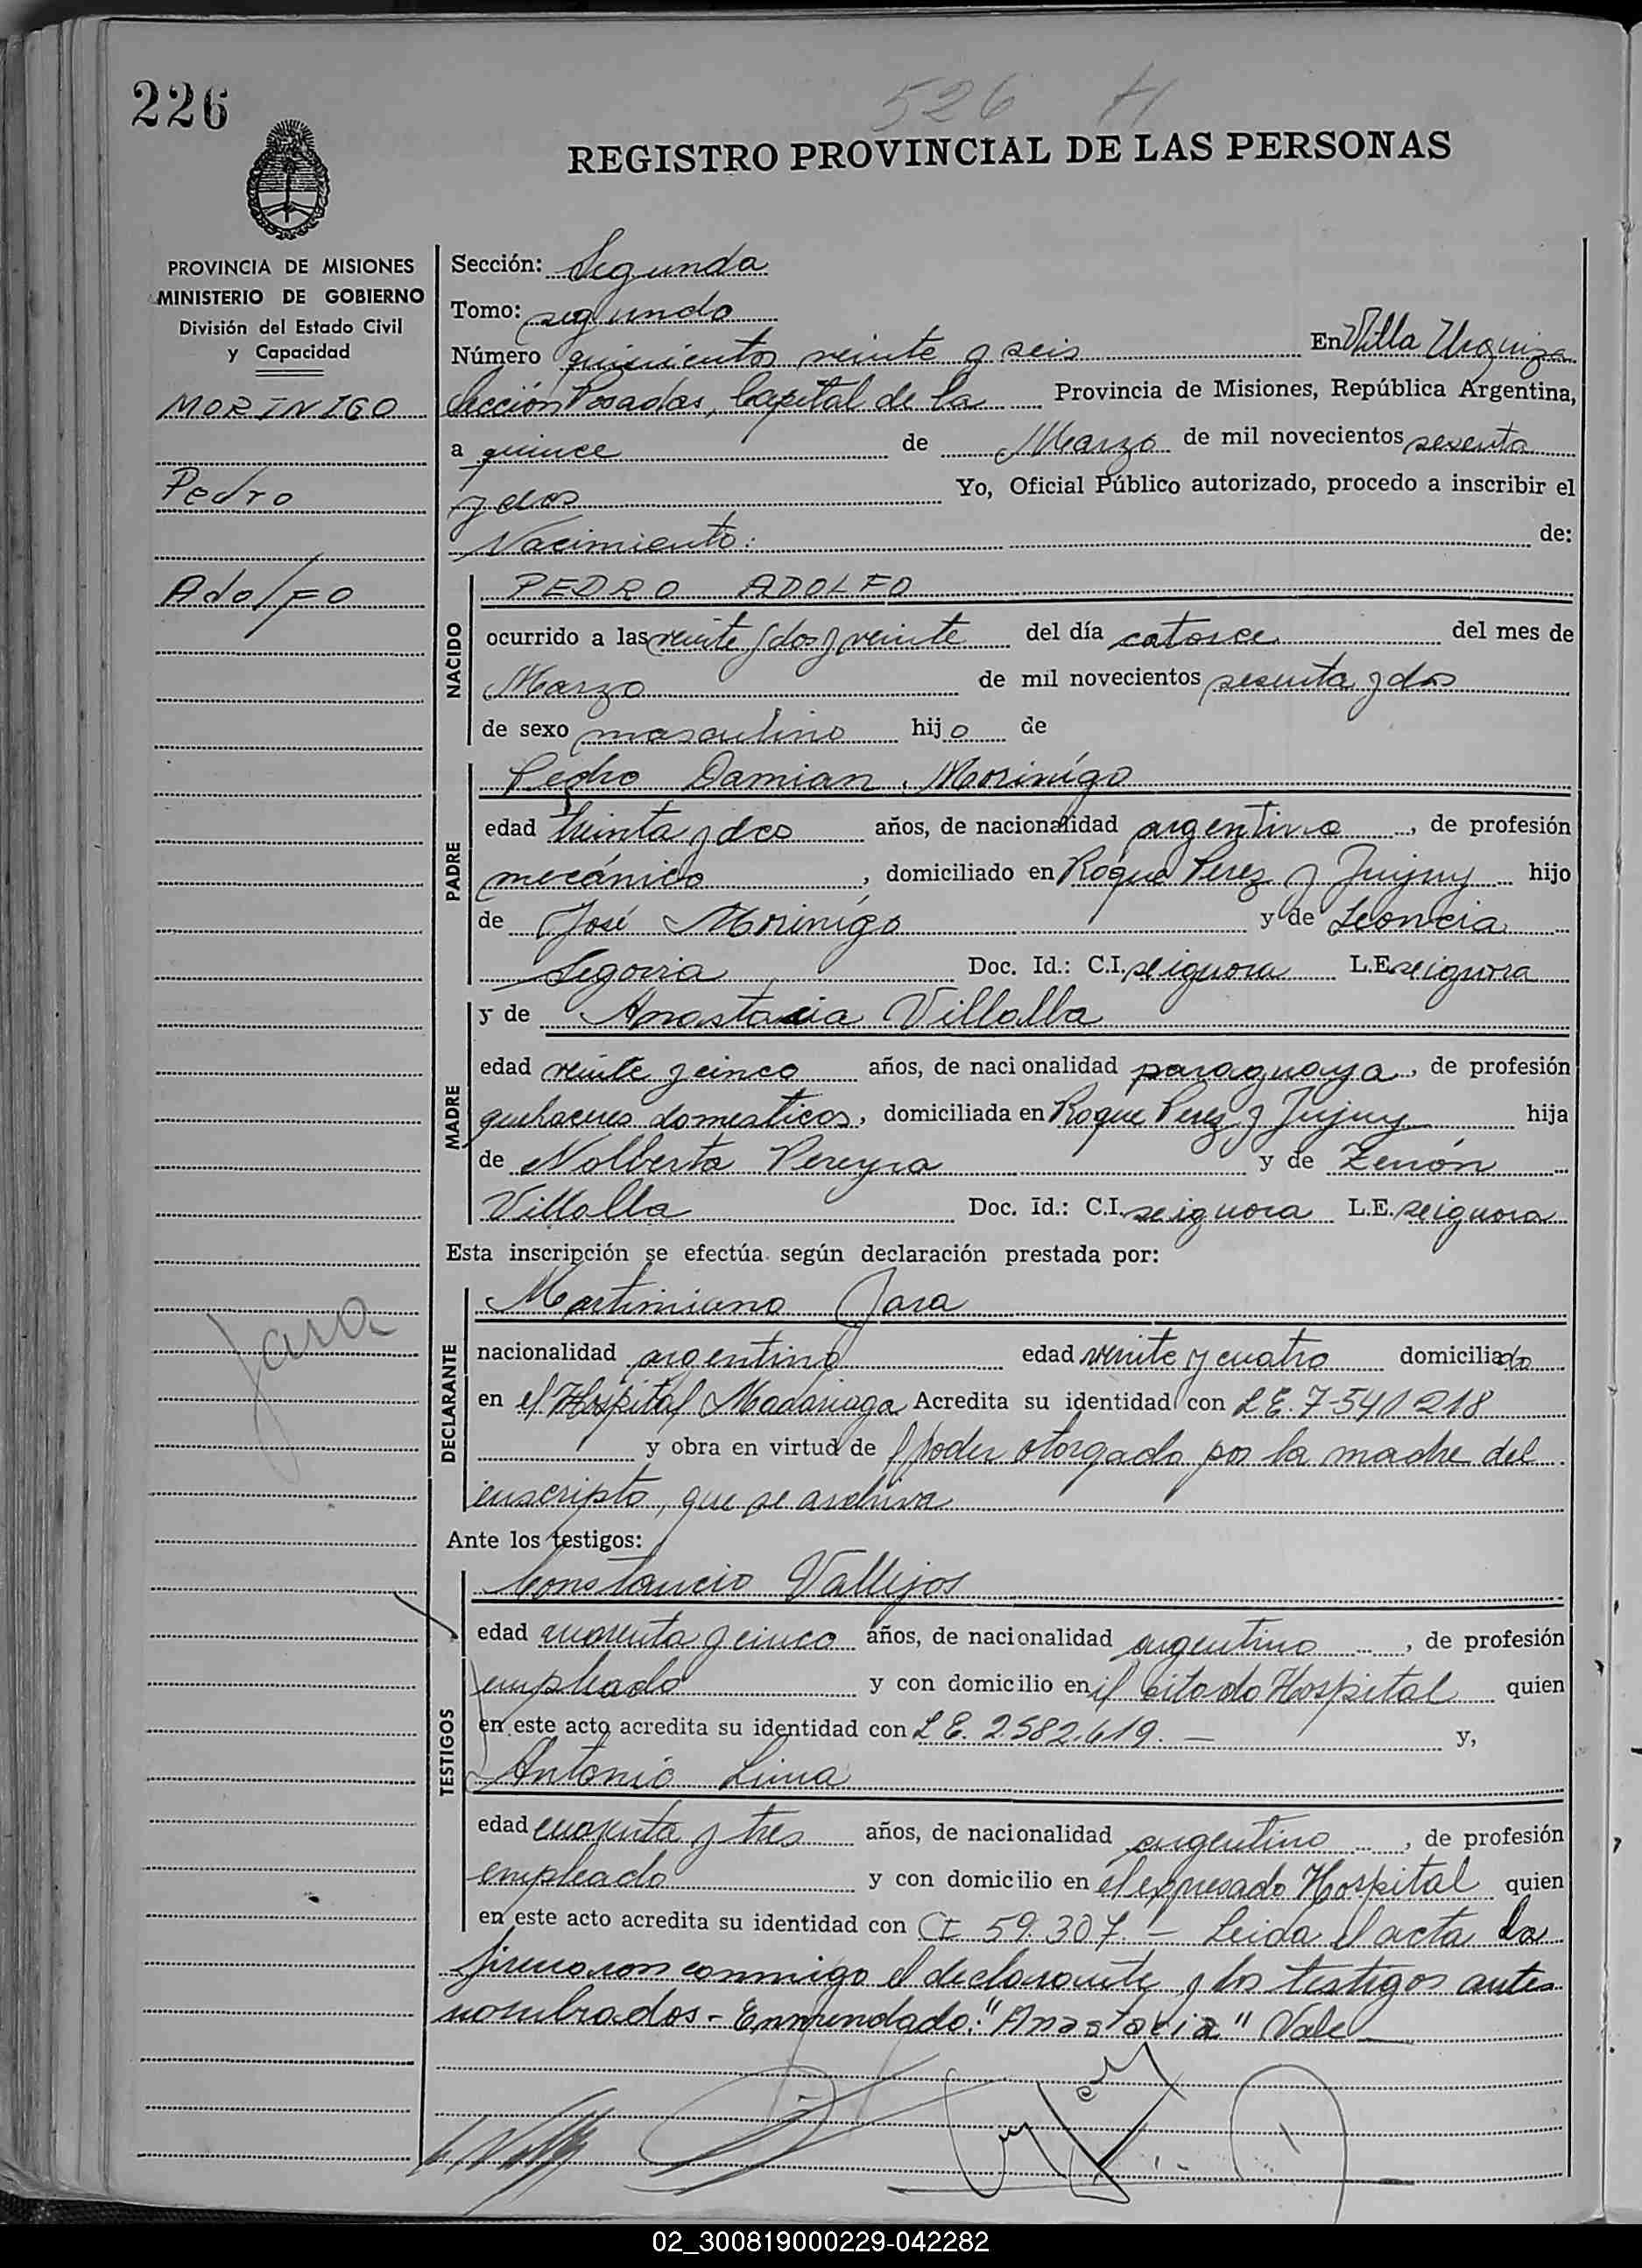 226
526 H
REGISTRO PROVINCIAL DE LAS PERSONAS
PROVINCIA DE MISIONES
MINISTERIO DE GOBIERNO
División del Estado Civil
y Capacidad
MORINIGO
Pedro
Adolfo
Jara
Sección: Segunda
Tomo: segundo
Número quinientos veinte y seis En Villa Urquiza
Sección Posadas, Capital de la Provincia de Misiones, República Argentina,
a quince de Marzo de mil novecientos sesenta
y dos Yo, Oficial Público autorizado, procedo a inscribir el
Nacimiento: de:
NACIDO
PEDRO ADOLFO
ocurrido a las veinte y dos y veinte del día catorce del mes de
Marzo de mil novecientos sesenta y dos
de sexo masculino hijo de
PADRE
Pedro Damian Morinigo
edad treinta y dos años, de nacionalidad argentino, de profesión
mecánico, domiciliado en Roque Perez y Jujuy hijo
de José Morinigo y de Leoncia
Segovia Doc. Id.: C.I. se ignora L.E. se ignora
MADRE
y de Anastacia Villalba
edad veinte y cinco años, de nacionalidad paraguaya, de profesión
quehaceres domesticos, domiciliada en Roque Perez y Jujuy hija
de Nolberta Pereyra y de Zenón
Villalba Doc. Id.: C.I. se ignora L.E. se ignora
Esta inscripción se efectúa según declaración prestada por:
DECLARANTE
Martimiano Jara
nacionalidad argentino edad veinte y cuatro domiciliado
en el Hospital Madariaga Acredita su identidad con L.E. 7.541.218
y obra en virtud de poder otorgado por la madre del
inscripto, que se archiva
Ante los testigos:
TESTIGOS
Constancio Vallejos
edad cuarenta y cinco años, de nacionalidad argentino, de profesión
empleado y con domicilio en el citado Hospital quien
en este acto acredita su identidad con L.E. 2.582.619. — y,
Antonio Lima
edad cuarenta y tres años, de nacionalidad argentino, de profesión
empleado y con domicilio en el expresado Hospital quien
en este acto acredita su identidad con CI 59.307. – Leida el acta la
firmaron conmigo el declarante y los testigos antes
nombrados - Enmendado: "Anastacia" Vale
02_300819000229-042282